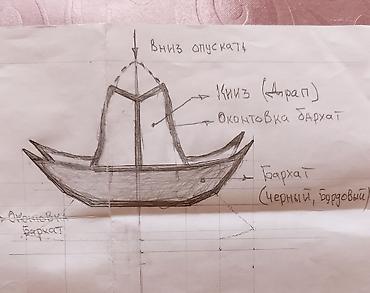 вниз опускать
Кииз (Драп)
Оконтовка бархат
Бархат
(черный, бордовый)
Оконтовка
Бархат